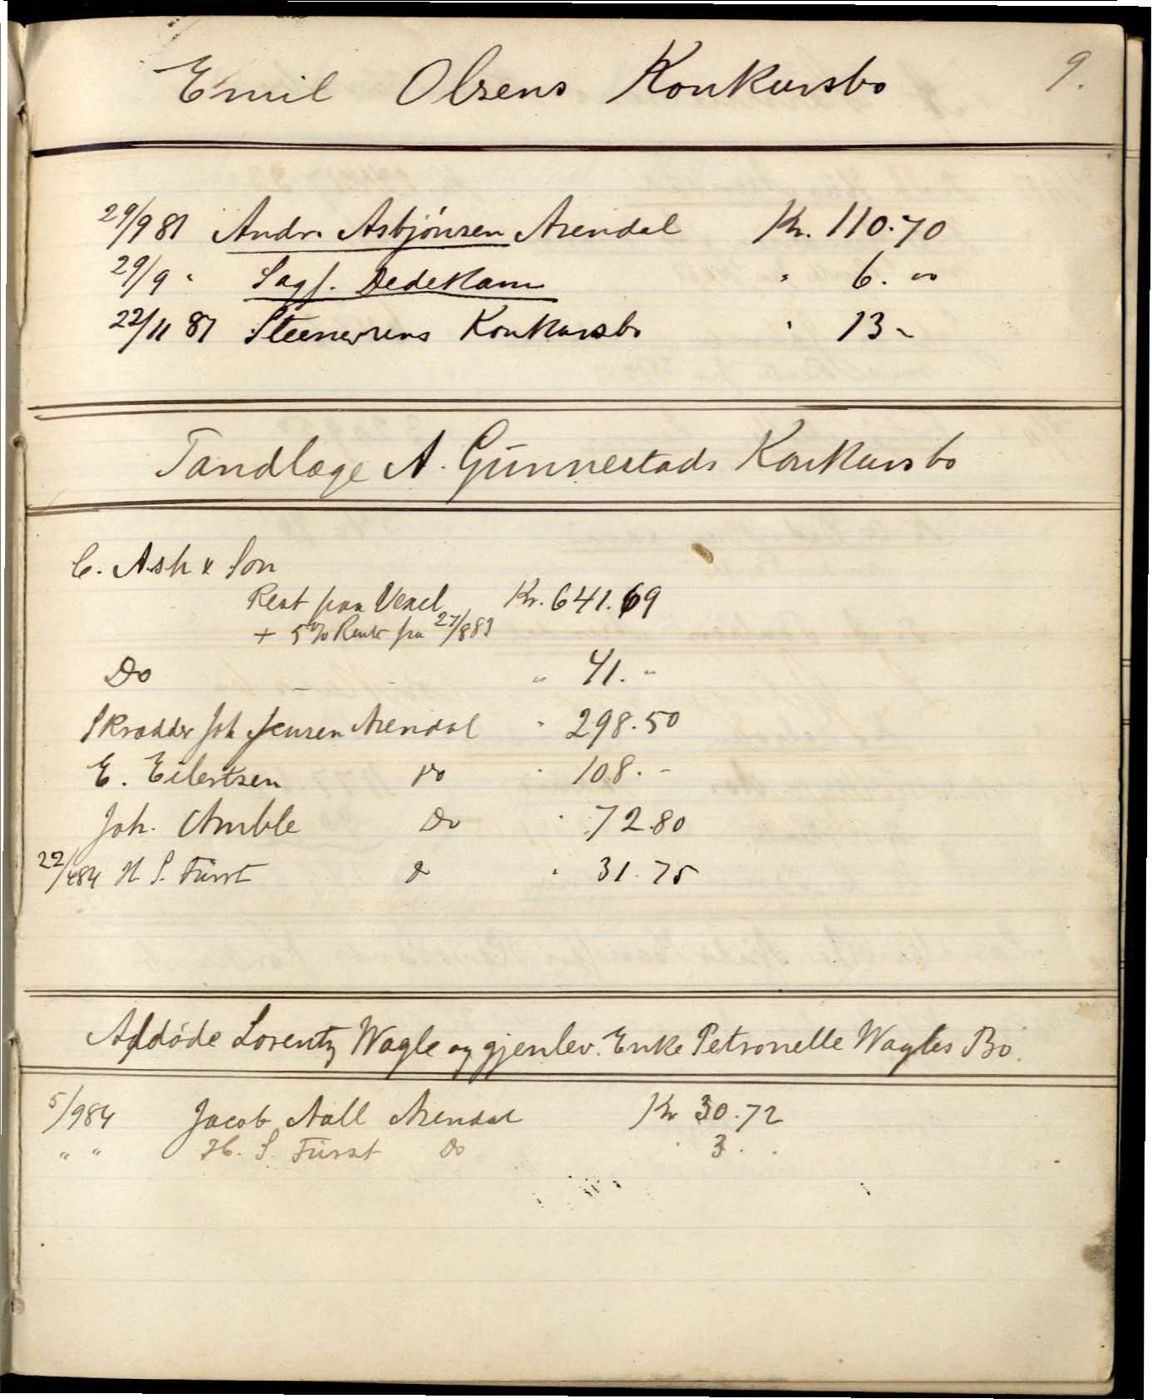 Emil Olsens Konkursbo 9.
29/9 81 Andr. Asbjönsen Arendal Kr. 110.70
29/9 " Sagf. Dedekam " 6. "
22/11 87 Konkursbo " 13 "
Tandlæge A. Gunnestads Konkursbo
C. Ash & Son
Rest fra Vexel Kr. 641.69
+ 5% Rente fra 27/8 83
Do " 41. "
Skrædder Joh Jensen Arendal " 298.50
E. Eilertsen Do " 108. -
Joh. Amble Do " 72.80
22/4 84 H. S. Fürst Do " 31.75
Afdöde Lorentz Wagle og gjenlev. Enke Petronelle Wagles Bo.
5/9 84 Jacob Aall Arendal Kr 30.72
" " H. S. Fürst Do " 3. "